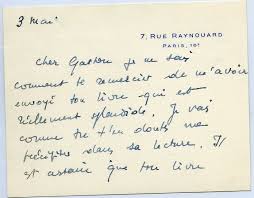 3 Mai
7, RUE RAYNOUARD
PARIS, 16e
Cher Gaston je ne sais
comment te remercier de m'avoir
envoyé ton livre qui est
réellement splendide. Je vais
comme tu t'en doutes me
précipiter dans sa lecture. Il
est certain que ton livre